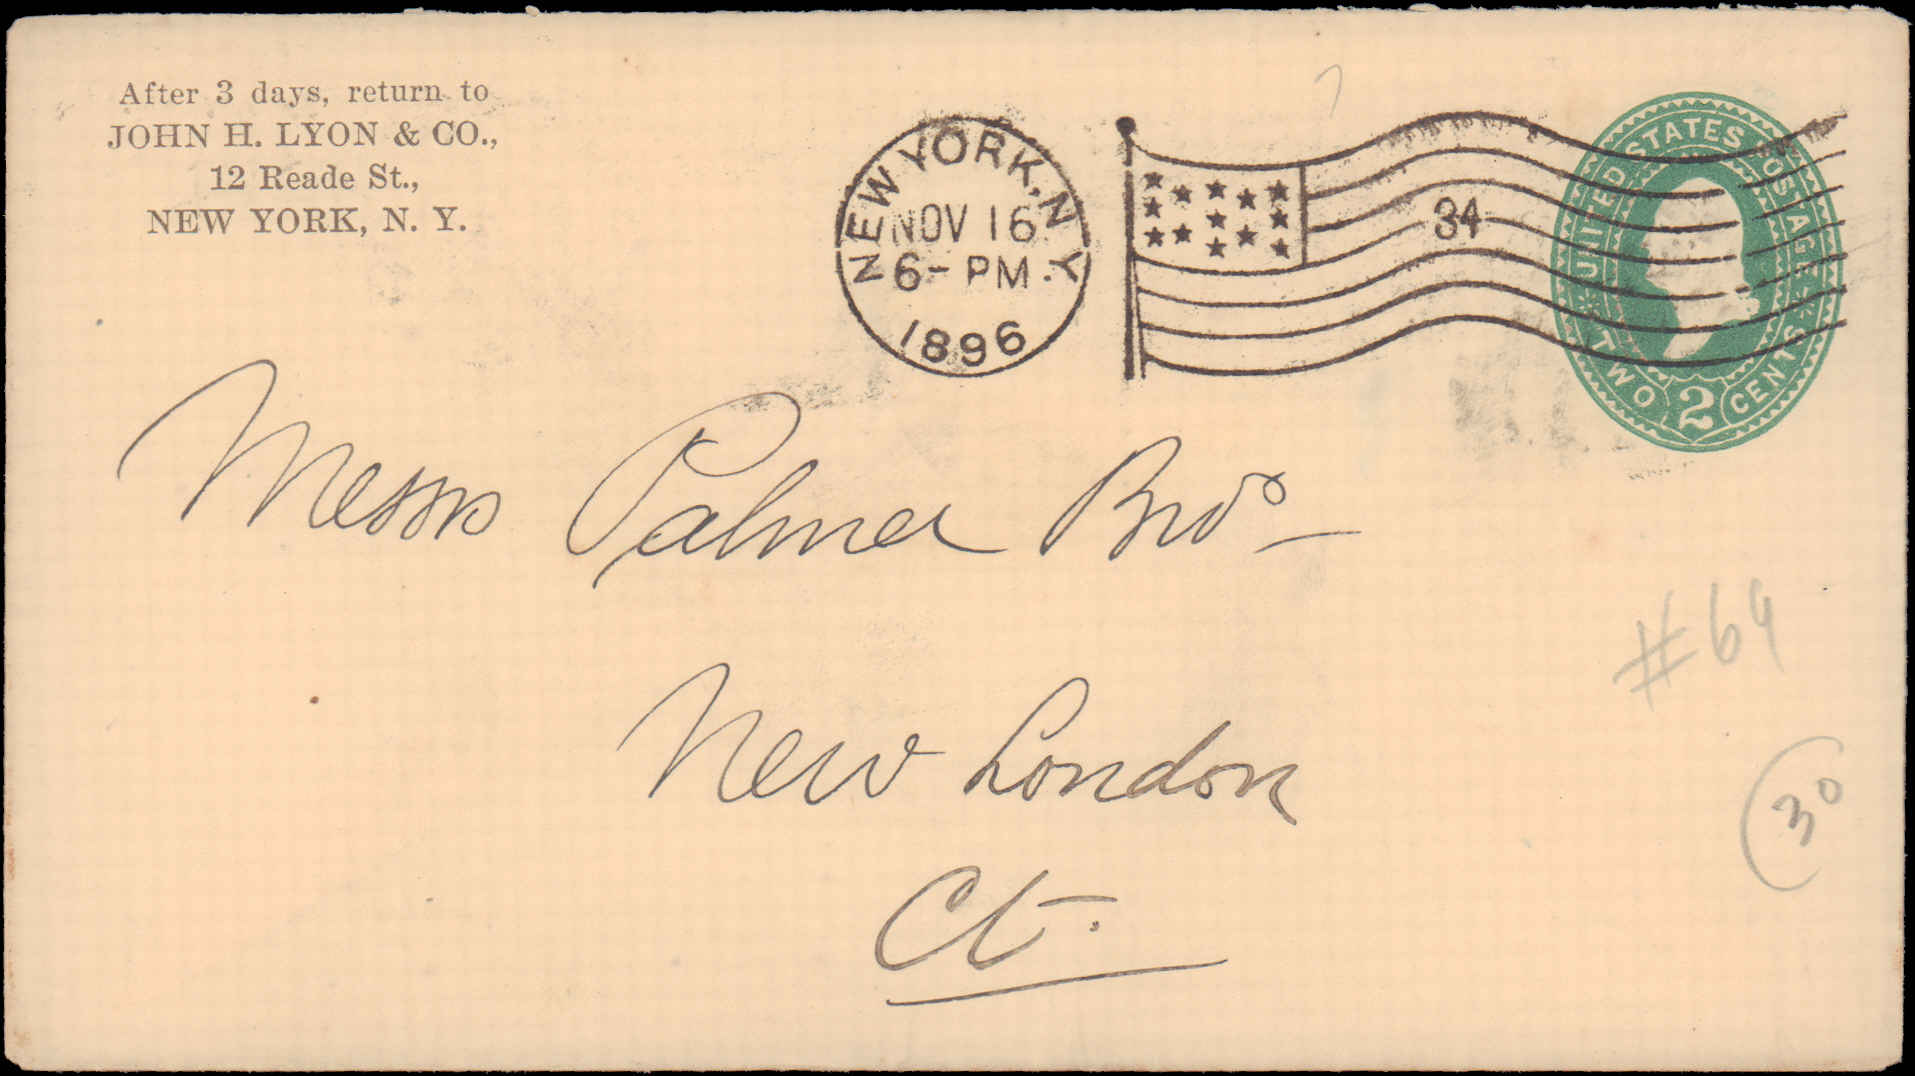 After 3 days, return to
JOHN H. LYON & CO.,
12 Reade St.,
NEW YORK, N. Y.
NEW YORK, N.Y.
NOV 16
6-PM
1896
34
UNITED STATES POSTAGE
TWO 2 CENTS
Messrs Palmer Bros
New London
Ct.
#64
30